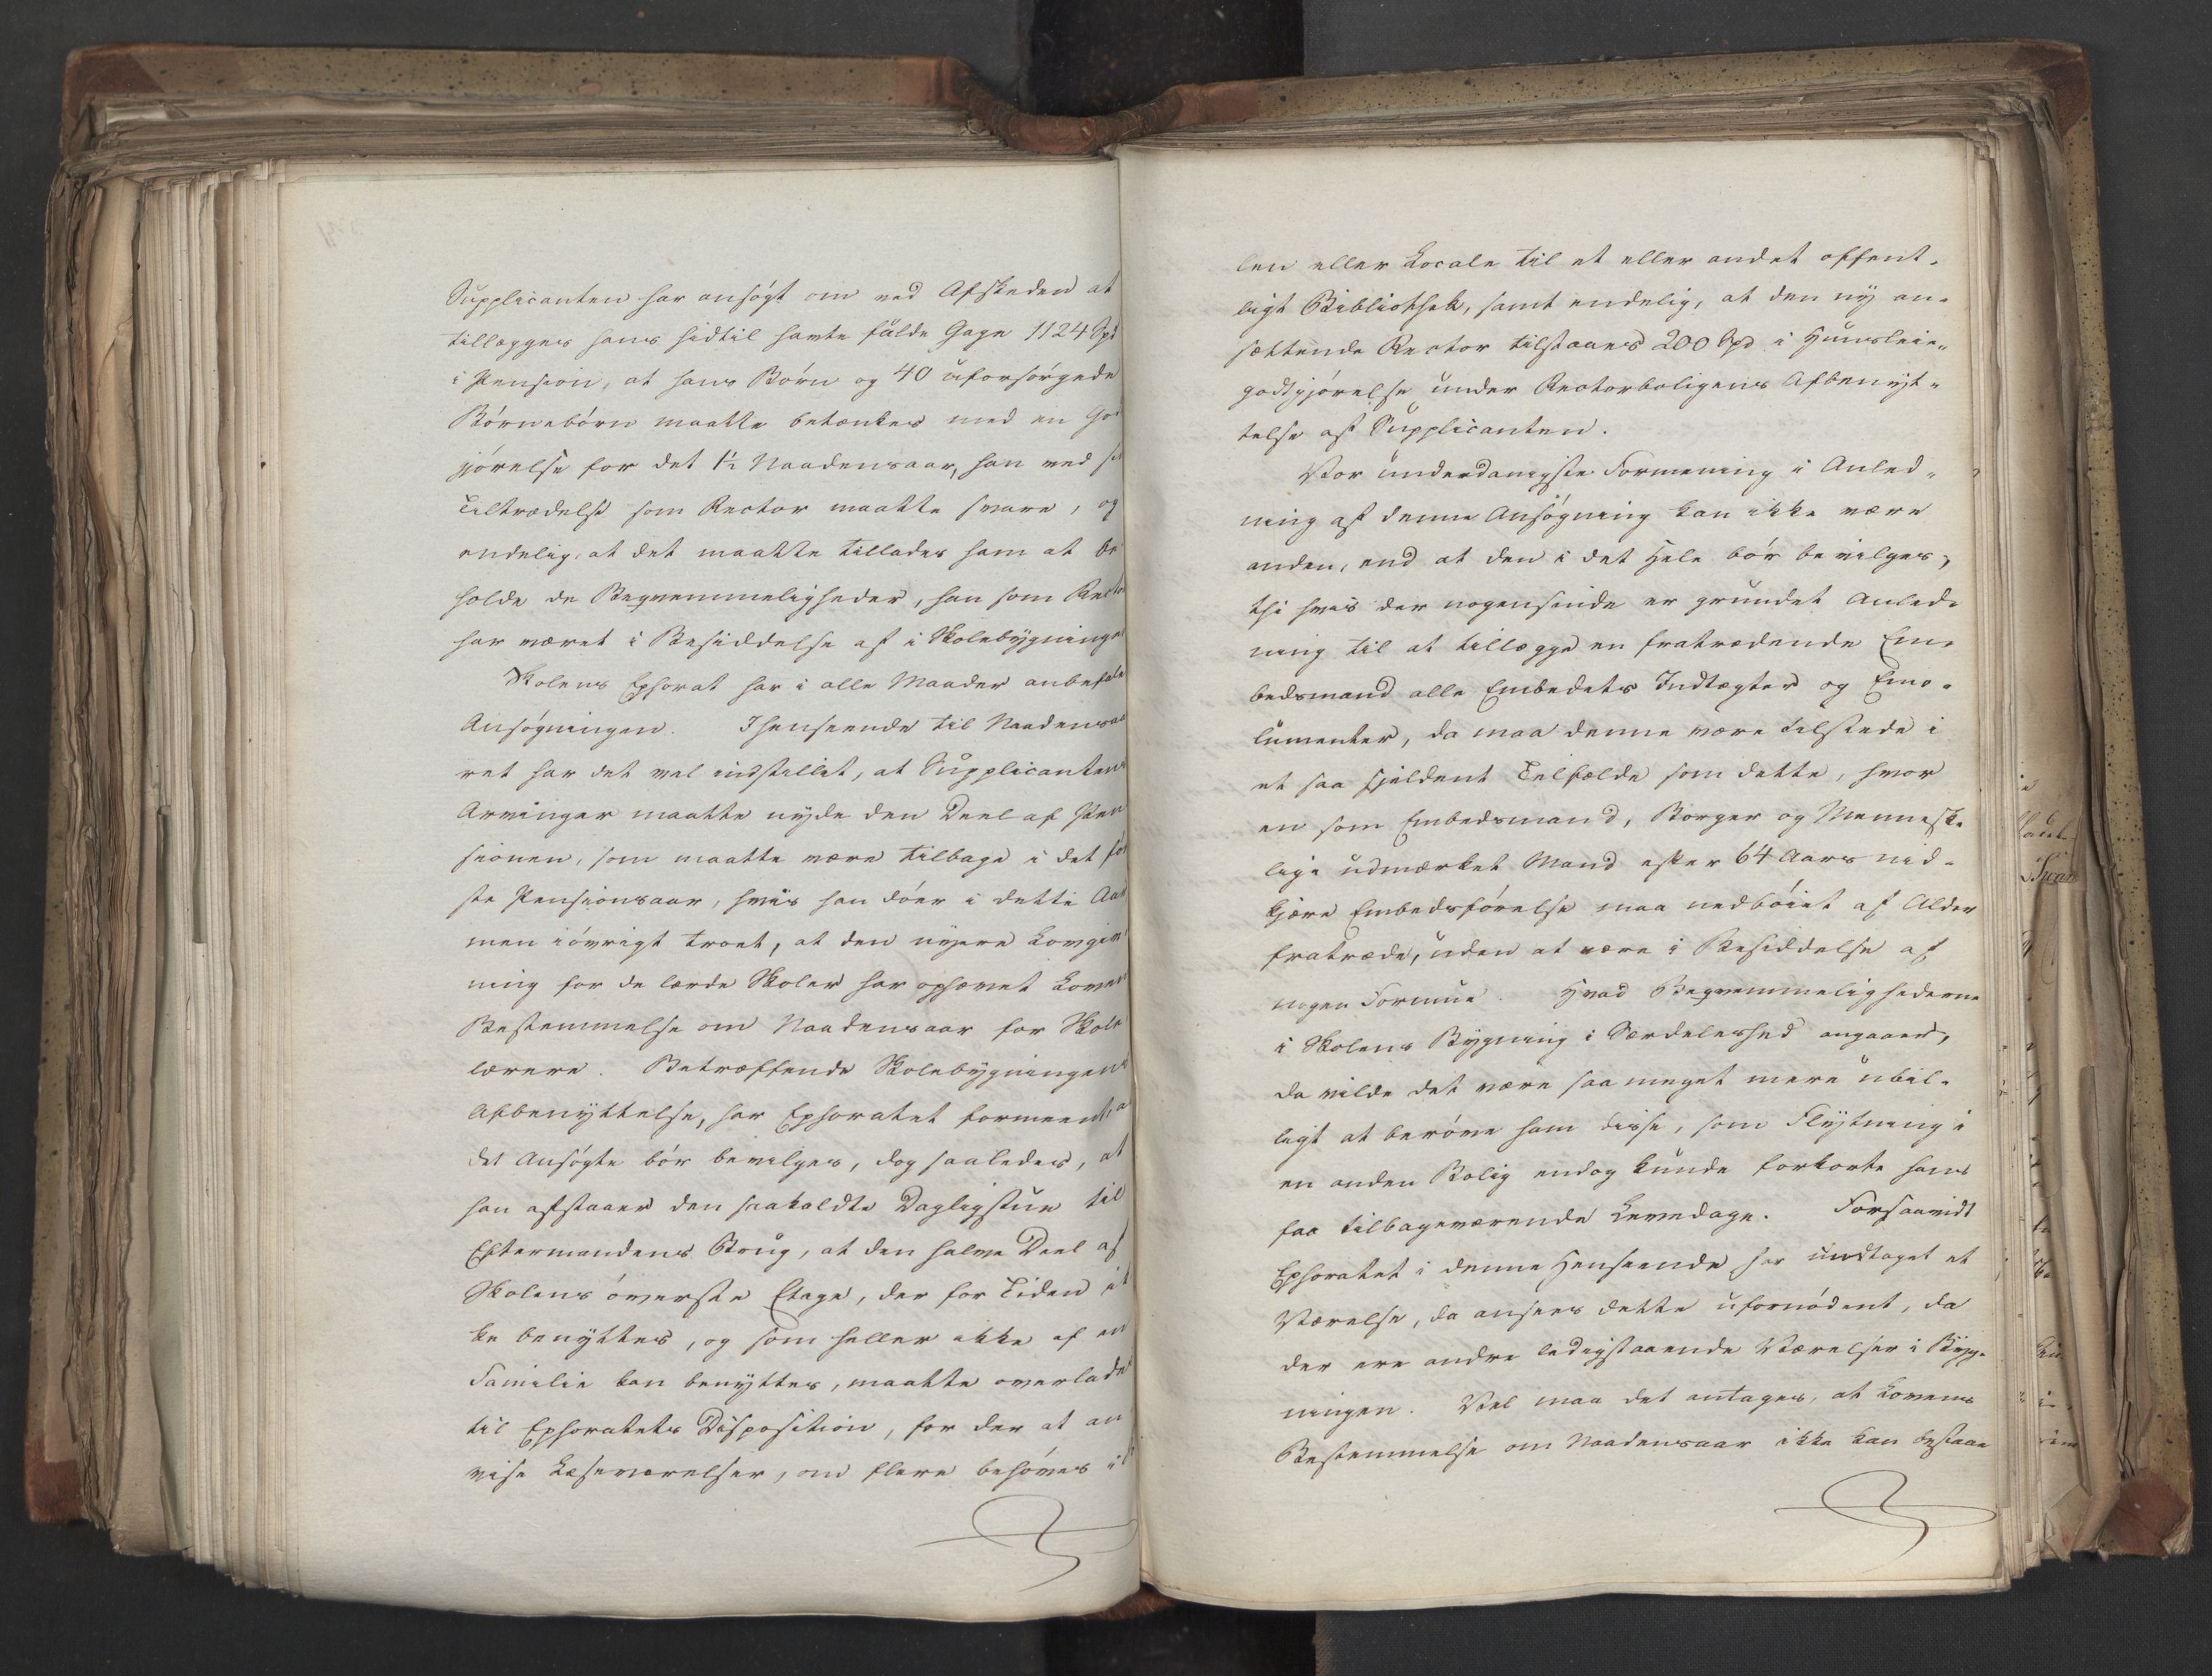 Supplicanten har ansøgt om ved Afskeden at
tillægges hans hidtil havte fulde Gage 1124 Spd
i Pension, at hans Børn og 40 uforsørgede
Børnebørn maatte betænkes med en God
gjørelse for det 1½ Naadensaar, han ved sin
Tiltrædelse som Rector maatte svare, og
endelig, at det maatte tillades ham at be
holde de Beqvemmeligheder, han som Rector
har været i Besiddelse af i Skolebygningen
Skolens Ephorat har i alle Maader anbefalet
Ansøgningen. I henseende til Naadensaa
ret har det vel indstillet, at Supplicantens
Arvinger maatte nyde den Deel af Pen
sionen, som maatte være tilbage i det før
ste Pensionsaar, hvis han døer i dette Aar
men iøvrigt troet, at den nyere Lovgiv
ning for de lærde Skoler har ophævet Lovens
Bestemmelse om Naadensaar for Skole
lærere. Betræffende Skolebygningens
Afbenyttelse, har Ephoratet formeent, a
det Ansøgte bør bevilges, dog saaledes, at
han afstaaer den saakaldte Dagligstue til
Eftermandens Brug, at den halve Deel af
Skolens øverste Etage, der for Tiden ik
ke benyttes, og som heller ikke af en
Familie kan benyttes, maatte overlades
til Ephoratets Disposition, for der at an
vise Læseværelser, om flere behøves i
len eller Locale til et eller andet offent-
ligt Bibliothek, samt endelig, at den ny an-
sættende Rector tilstaaes 200 Spd i Huusleie-
godtgjørelse under Rectorboligens Afbenyt-
telse af Supplicanten.
Vor underdanigste Formening i Anled-
ning af denne Ansøgning kan ikke være
anden, end at den i det Hele bør bevilges;
thi hvis der nogensinde er grundet Anled-
ning til at tillægge en fratrædende Em-
bedsmand alle Embedets Indtægter og Emo-
lumenter, da maa denne være tilstede i
et saa sjeldent Tilfælde som dette, hvor
en som Embedsmand, Borger og Menneske
lige udmærket Mand efter 64 Aars nid-
kjære Embedsførelse maa nedbøiet af Alder
fratræde, uden at være i Besiddelse af
nogen Formue. Hvad Beqvemmelighederne
i Skolens Bygning i Særdeleshed angaaer,
da vilde det være saameget mere ubil-
ligt at berøve ham disse, som Flytning i
en anden Bolig endog kunde forkorte hans
faa tilbageværende Levedage. Forsaavidt
Ephoratet i denne Henseende har undtaget et
Værelse, da ansees dette ufornødent, da
der ere andre ledigstaaende Værelser i Byg-
ningen. Vel maa det antages, at Lovens
Bestemmelse om Naadensaar ikke kan bestaae